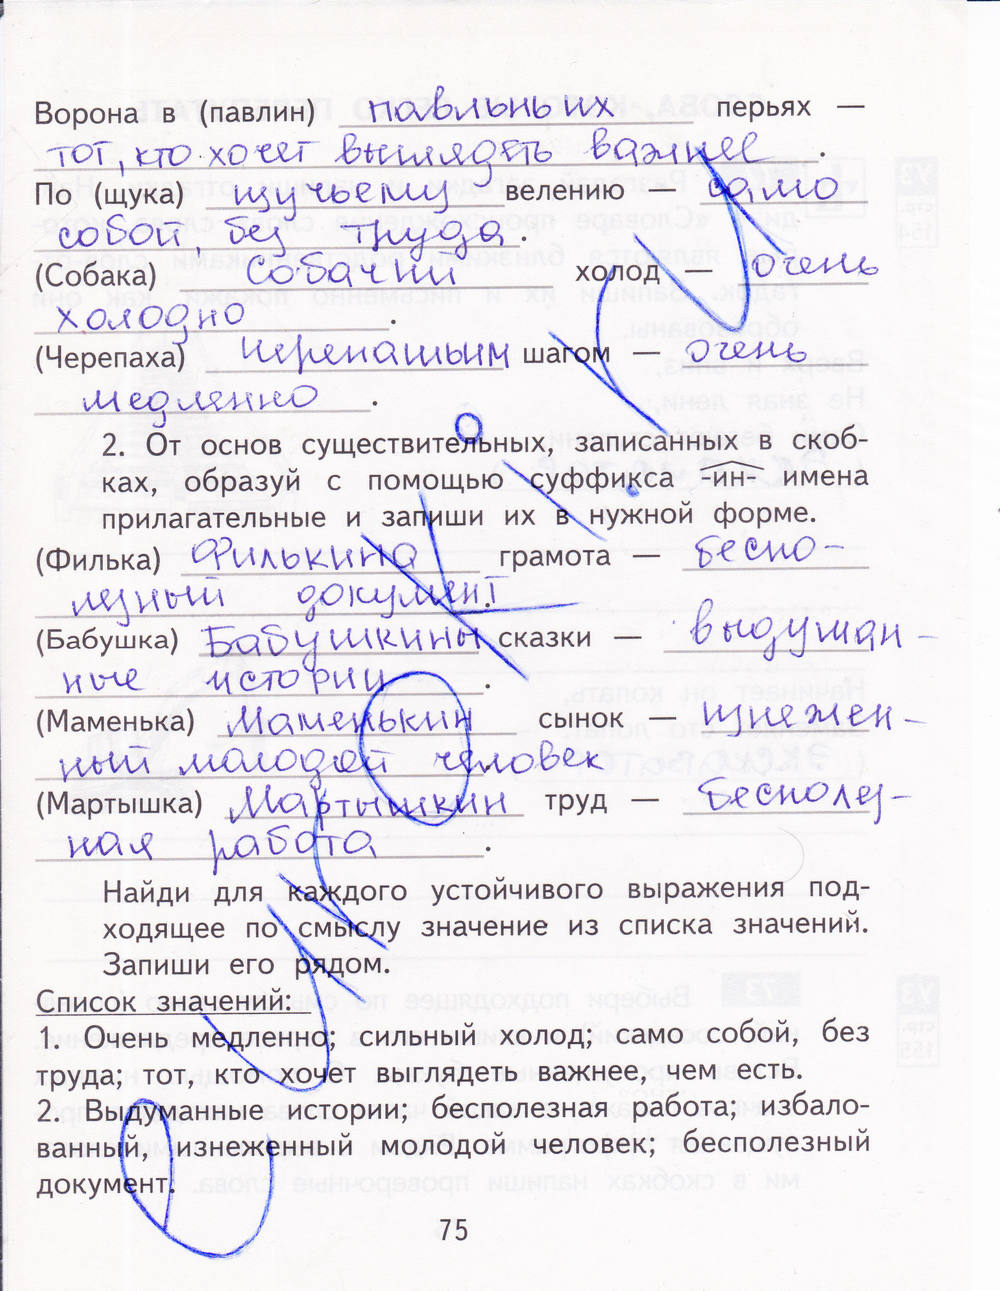 Ворона в (павлин) павльньих перьях —
тот, кто хочет выглядеть важнее.
По (щука) щучьему велению само
собой, без труда.
(Собака) собачий холод — очень
холодно.
(Черепаха) черепашьим шагом — очень
медленно.
2. От основ существительных, записанных в скоб-
ках, образуй с помощью суффикса -ин- имена
прилагательные и запиши их в нужной форме.
(Филька) Филькина грамота — беспо-
лезный документ.
(Бабушка) Бабушкины сказки — выдуман-
ные истории.
(Маменька) Маменькин сынок — изнежен-
ный молодой человек
(Мартышка) Мартышкин труд — бесполез-
ная работа.
Найди для каждого устойчивого выражения под-
ходящее по смыслу значение из списка значений.
Запиши его рядом.
Список значений:
1. Очень медленно; сильный холод; само собой, без
труда; тот, кто хочет выглядеть важнее, чем есть.
2. Выдуманные истории; бесполезная работа; избало-
ванный, изнеженный молодой человек; бесполезный
документ.
75